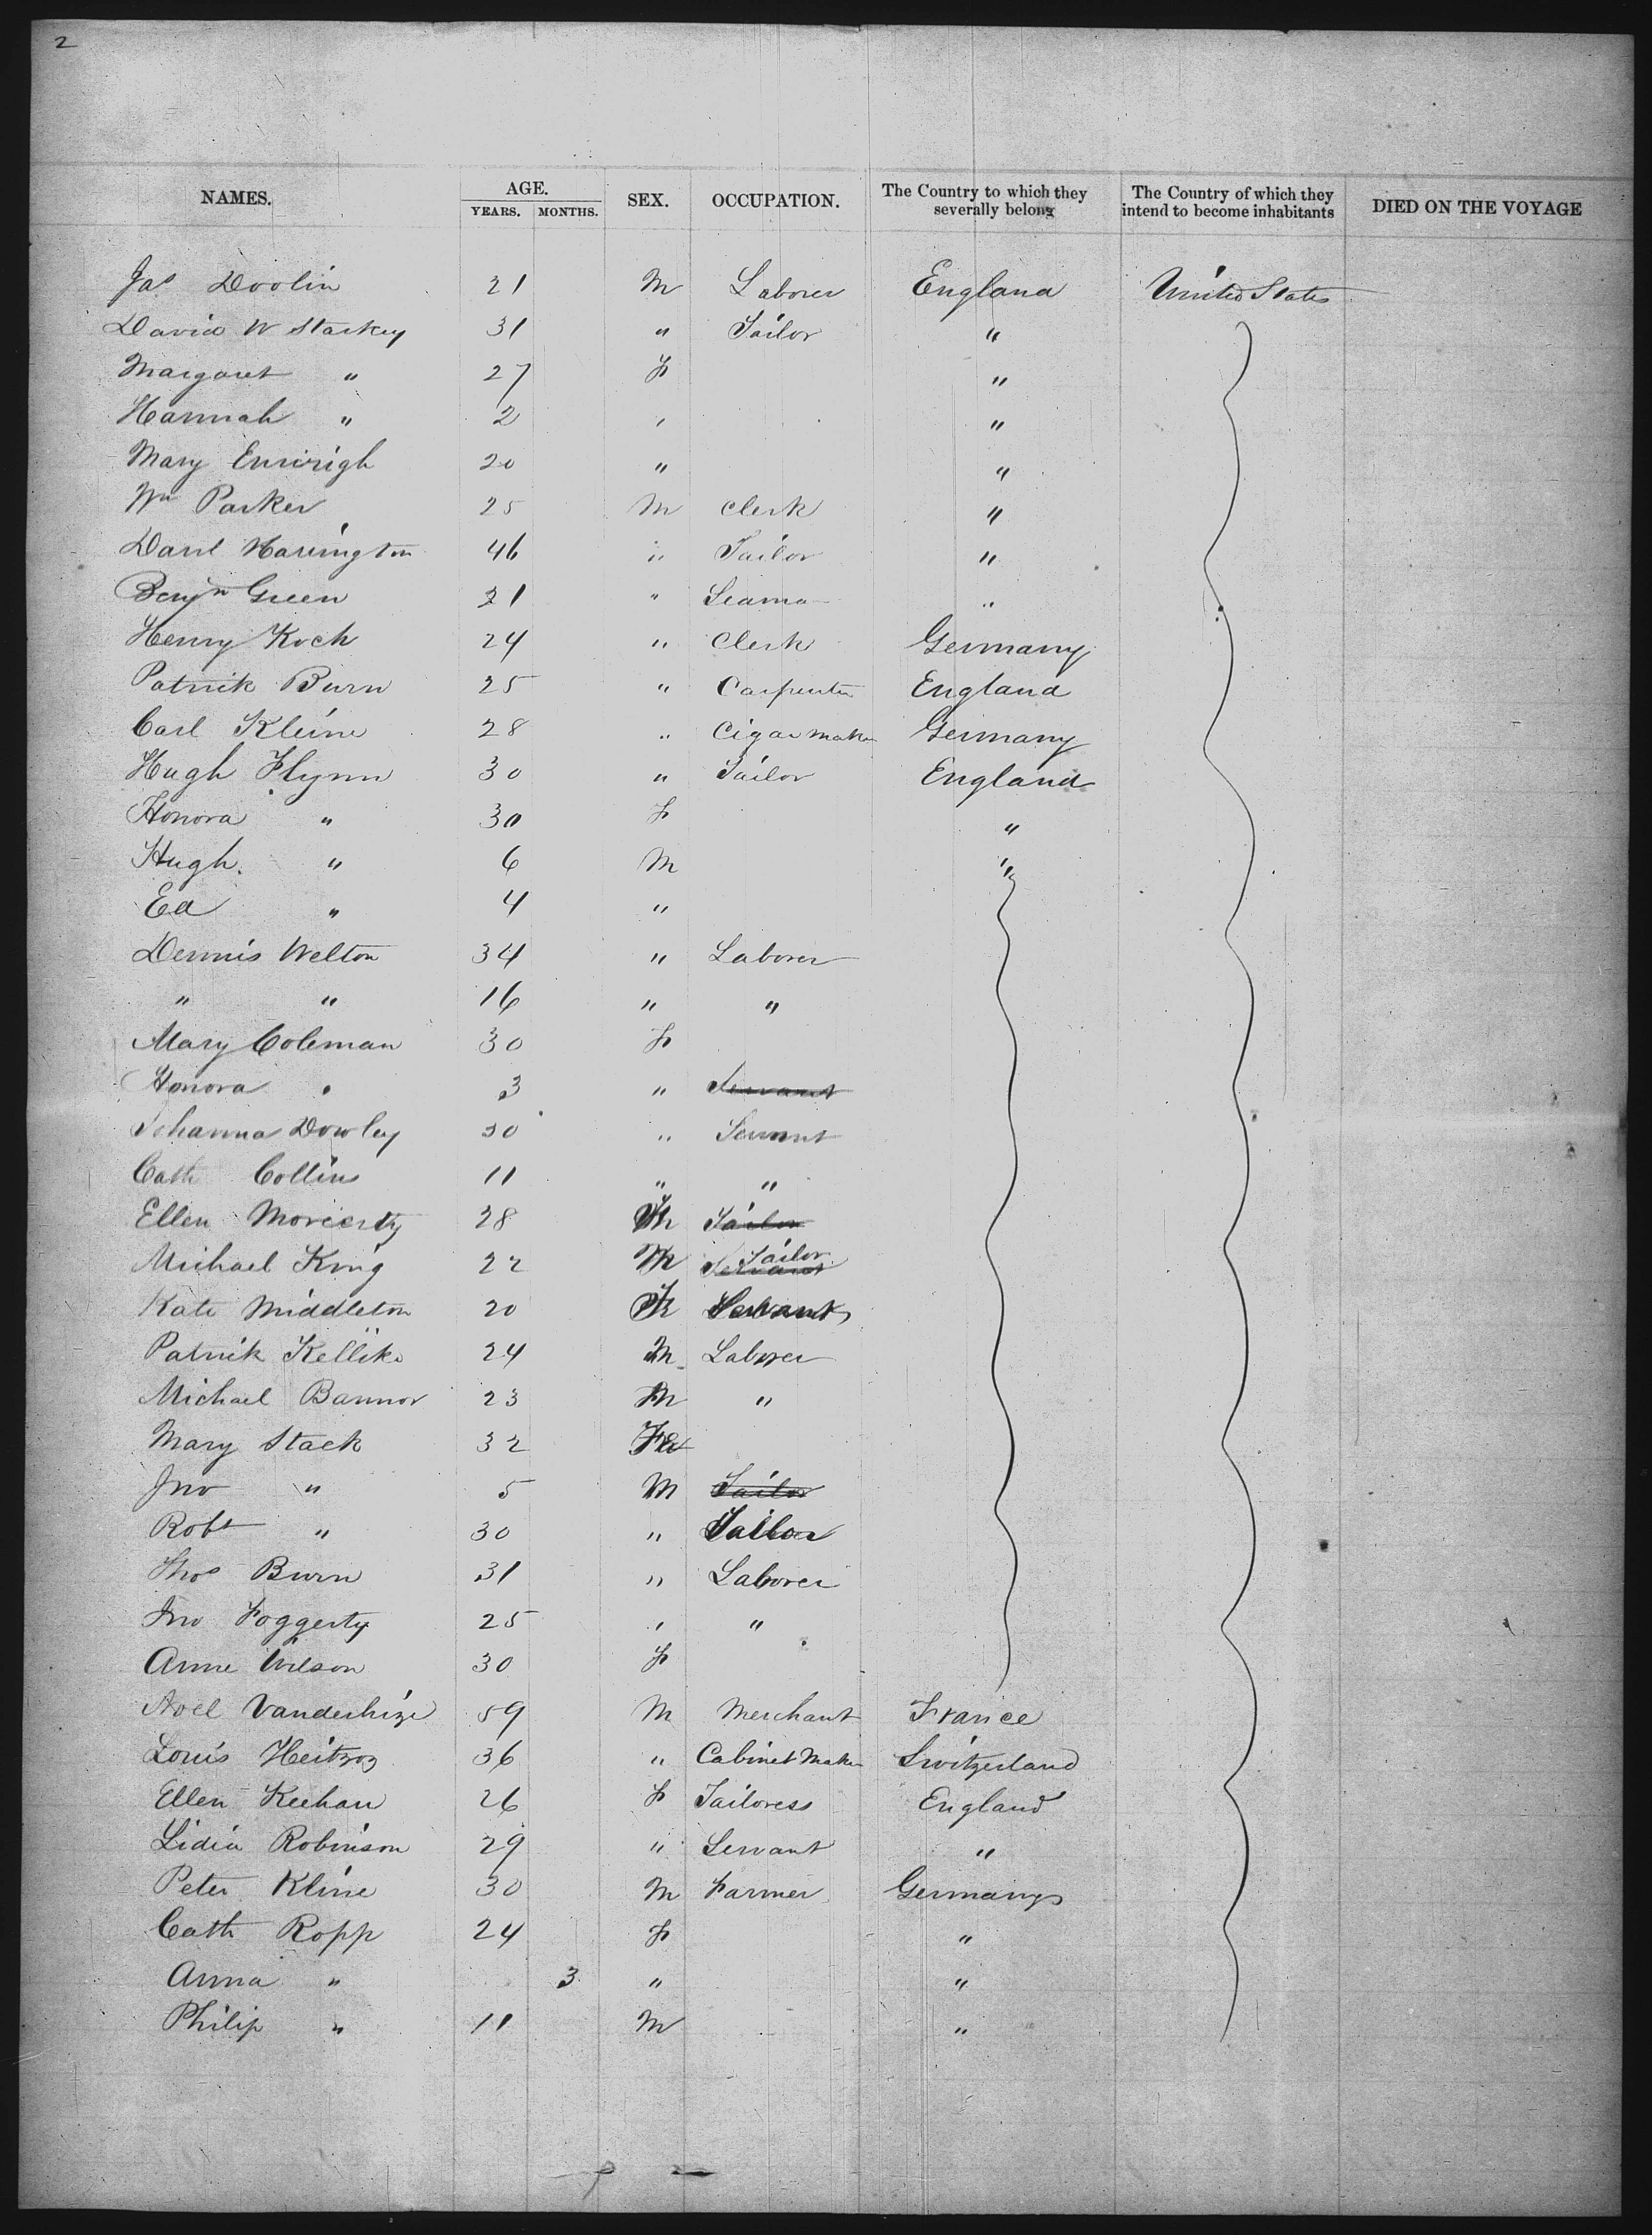 2
NAMES. AGE. YEARS. MONTHS. SEX. OCCUPATION. The Country to which they severally belong The Country of which they intend to become inhabitants DIED ON THE VOYAGE
Jas Doolin 21 M Laborer England United States
David W Starkey 31 " Tailor "
Margaret " 27 F "
Hannah " 2 " "
Mary 20 " "
Wm Parker 25 M Clerk "
Danl Harrington 46 " Tailor "
Benjn Green 21 " Seaman "
Henry Koch 24 " Clerk Germany
Patrick Burn 25 " Carpenter England
Carl Kleine 28 " Cigar maker Germany
Hugh Flynn 30 " Tailor England
Honora " 30 F "
Hugh " 6 M "
Ed " 4 "
Dennis Welton 34 " Laborer
" " 16 " "
Mary Coleman 30 F
Honora " 3 " Servant
Johanna Dowley 30 " Servant
Cath Collins 11 " "
Ellen Morierty 28 F Tailor
Michael King 22 M Servant Tailor
Kate Middleton 20 F Servant
Patrick 24 M Laborer
Michael Bannor 23 M "
Mary Stack 32 Fe
Jno " 5 M Tailor
Robt " 30 " Tailor
Thos Burn 31 " Laborer
Jno Foggerty 25 " "
Anne Wilson 30 F
Noel 59 M Merchant France
Louis 36 " Cabinet Maker Switzerland
Ellen Keehan 26 F Tailoress England
Lidia Robinson 29 " Servant "
Peter Kline 30 M Farmer Germany
Cath Ropp 24 F "
Anna " 3 " "
Philip " 11 M "